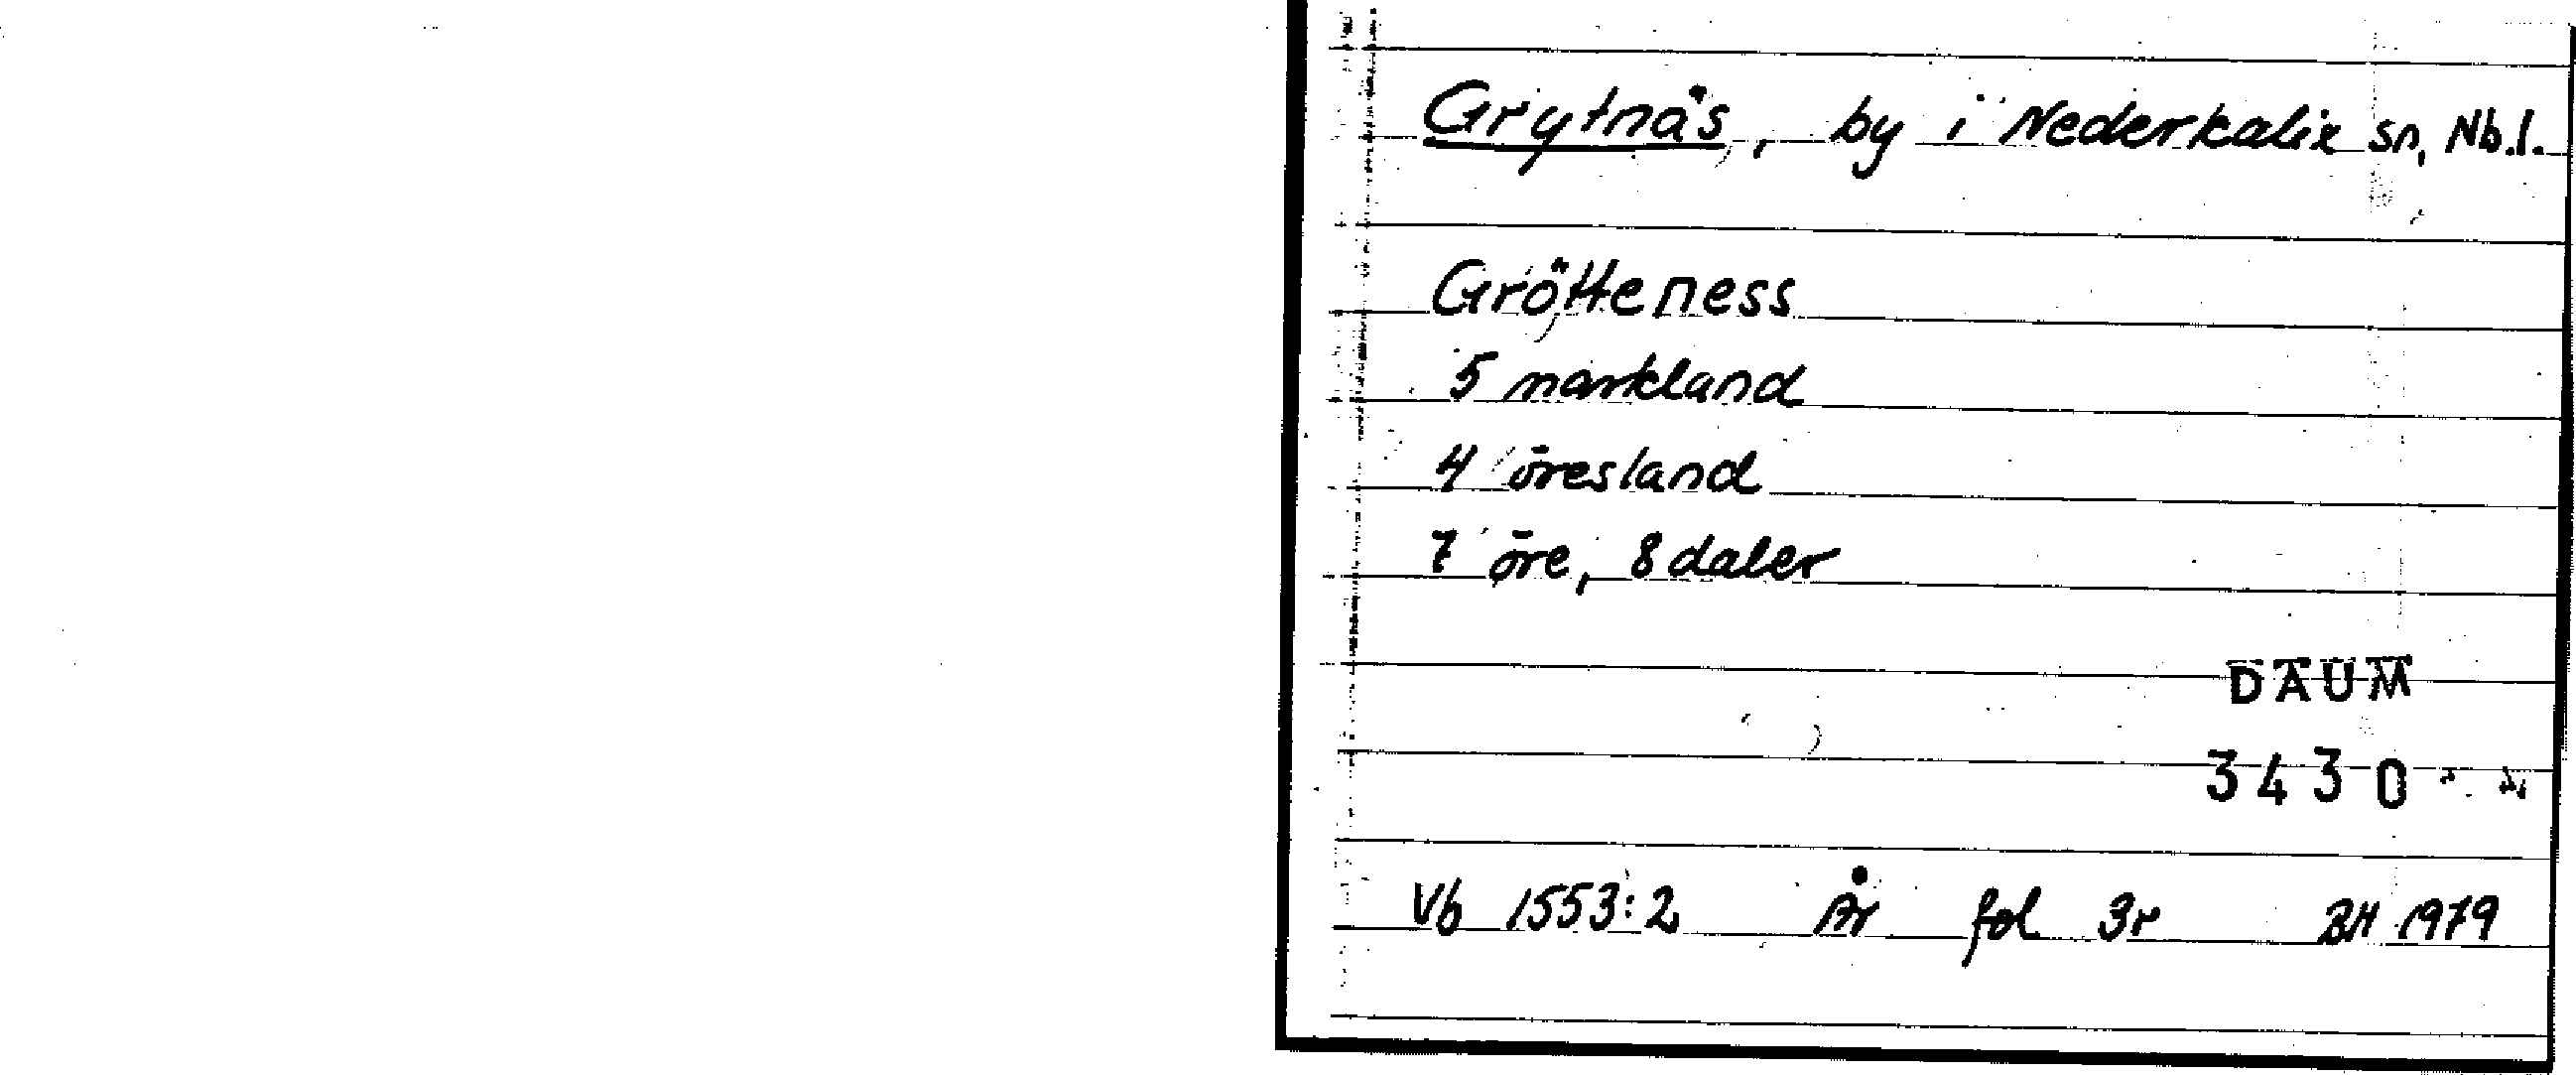 Grytnäs, by i Nederkalix sn, Nb.l.
Grötteness
5 markland
4 öresland
7 öre, 8 daler
DAUM
3430
Vb 1553:2 År fol 3r BH 1979